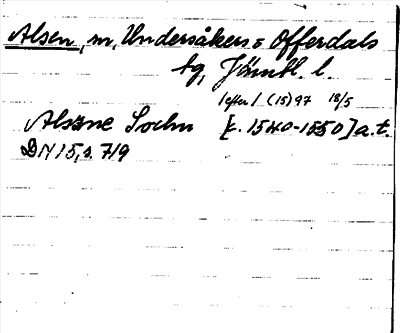 Alsen, m, Undersåkers o Offerdals
tg, Jämtl. l.
/efter/ (15)97 18/5
Alszne Sochn [c. 1540-1550] a.t.
DN 15, s. 719